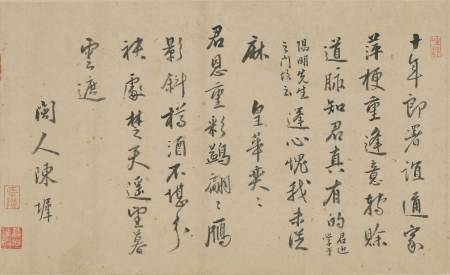 十年郎署誼通家
萍梗重逢意轉賒
道脉知君真有的君近學于
陽明先生之門故云蓬心愧我未從
麻 皇華奕〻
君恩重彩鷁翩〻鴈
影斜樽酒不堪分
袂處楚天遥望暮
雲遮
閩人陳墀